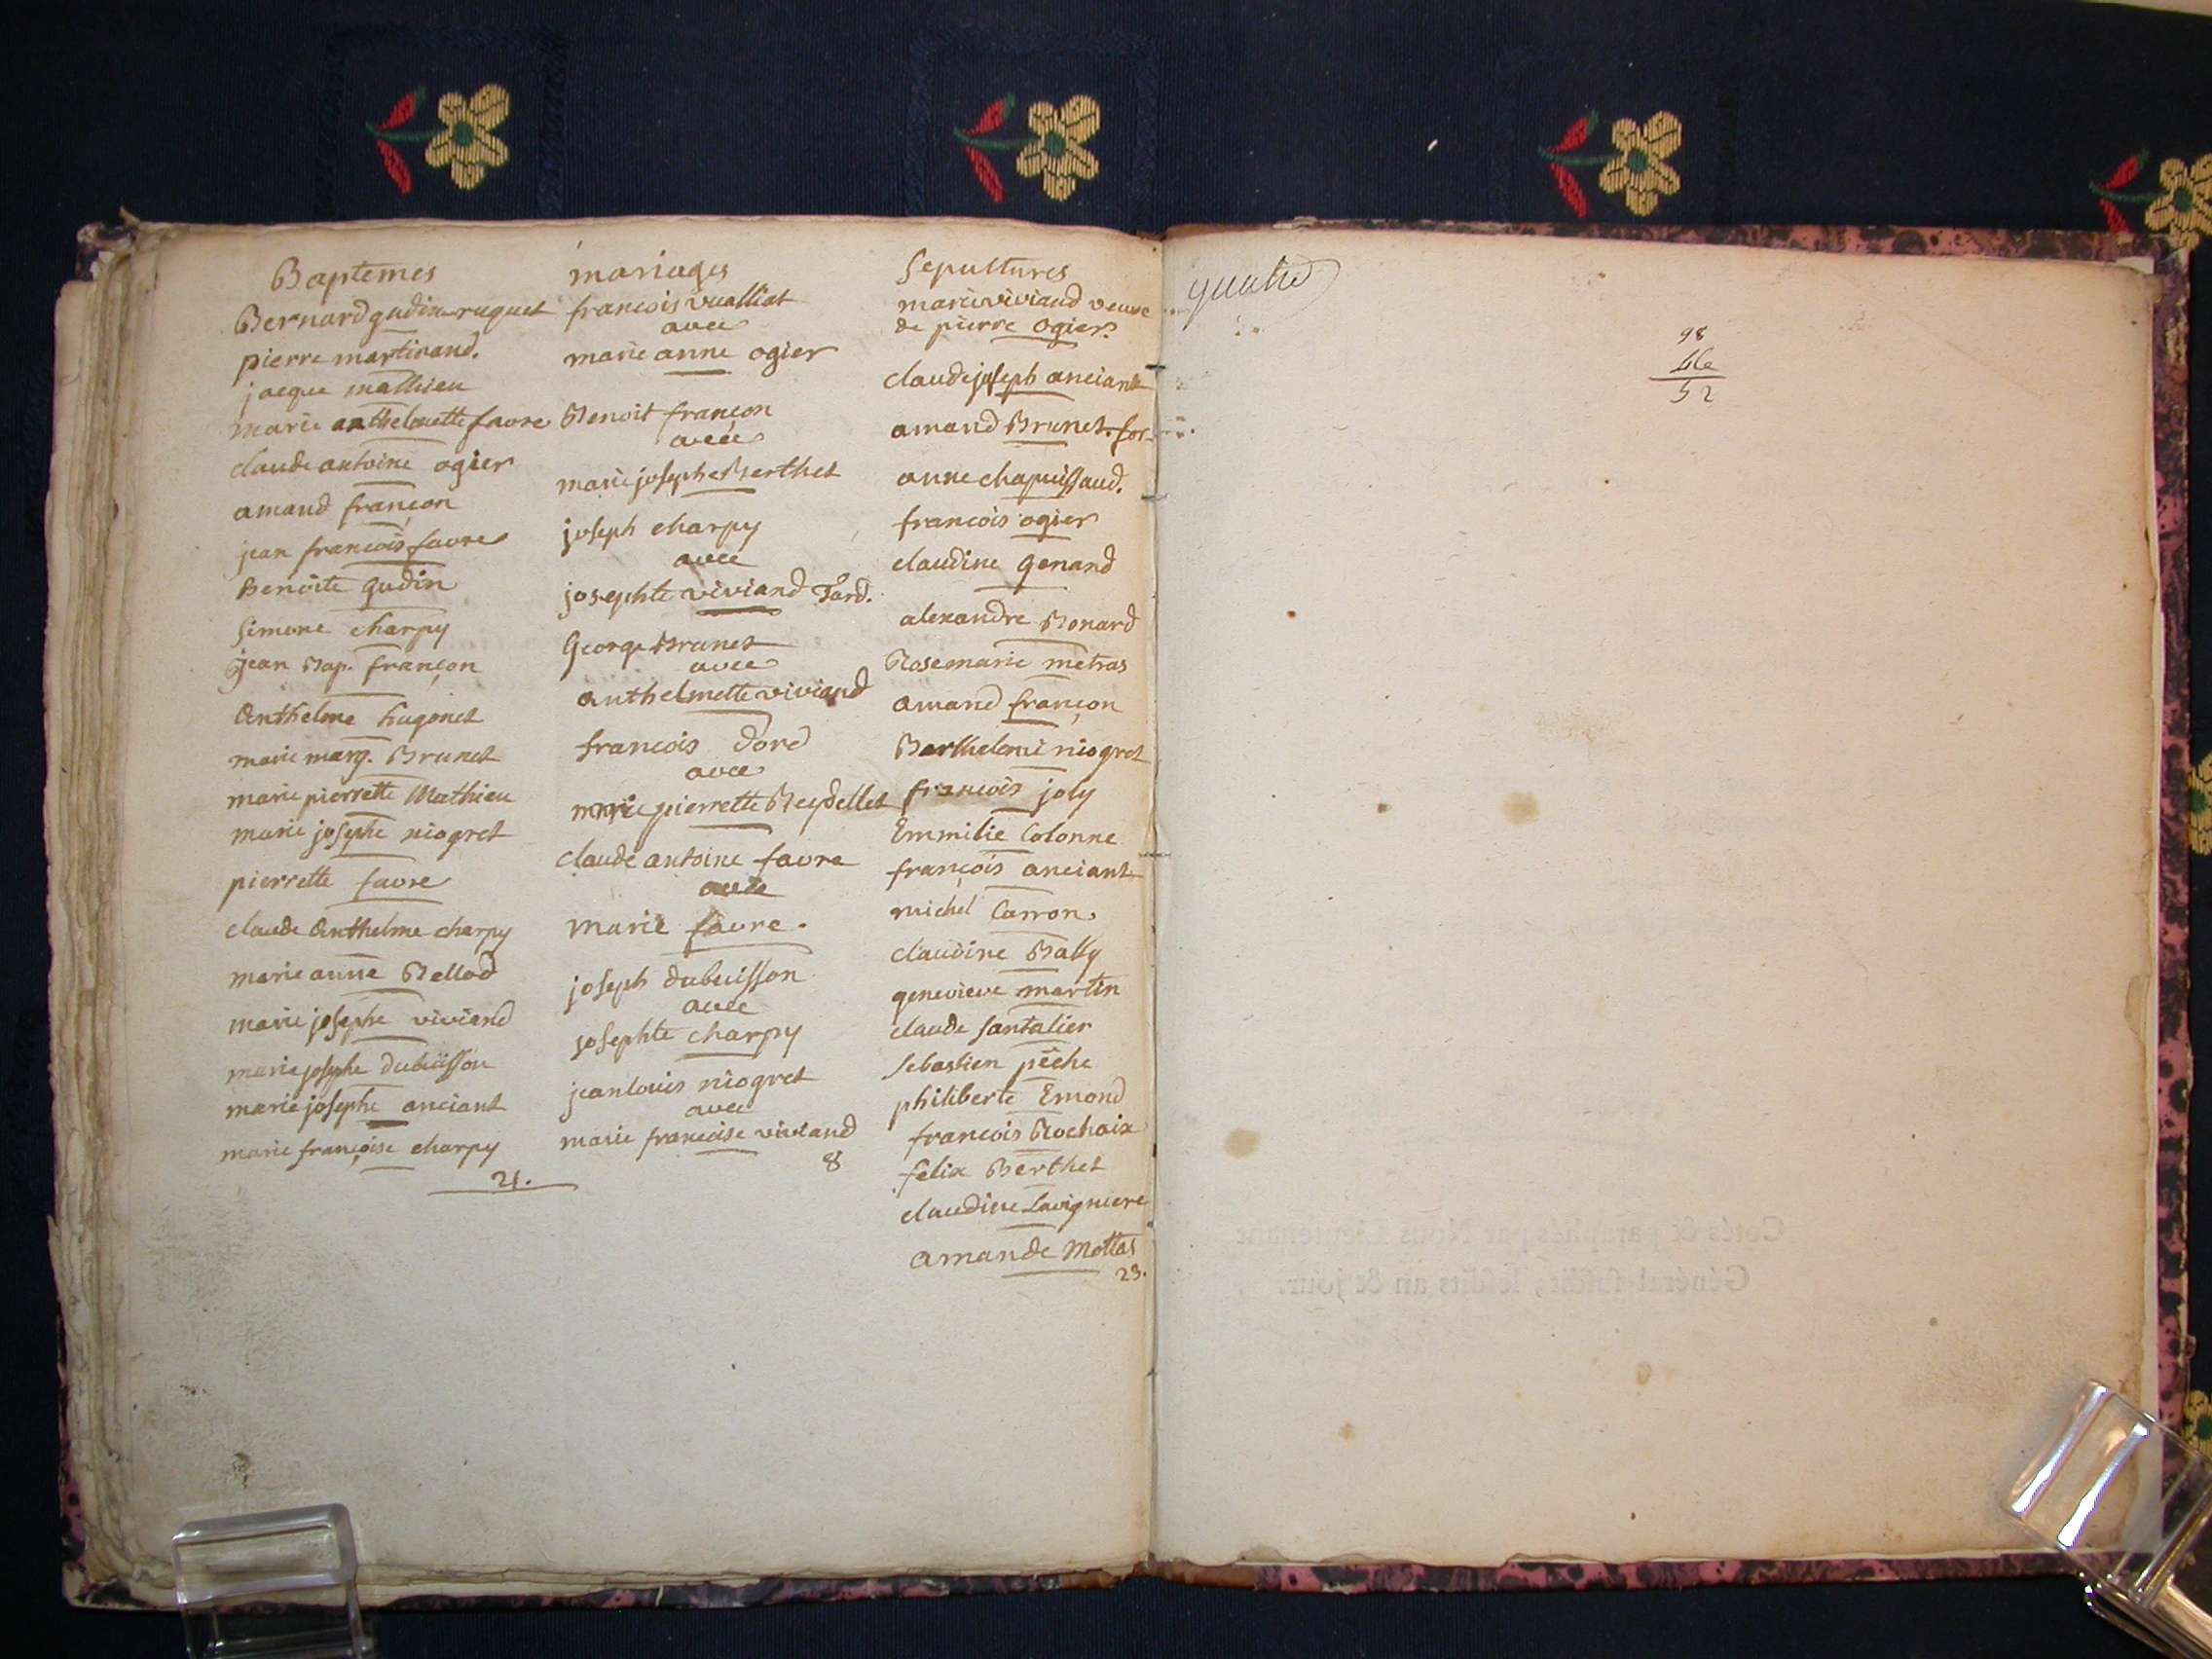 Baptemes
Bernard gudin-ruguet
pierre martinand.
jacque mathieu
marie anthelmette favre
claude antoine ogier
amand françon
jean francois favre
Benoite gudin
Simone charpy
jean Bap. françon
Anthelme hugonet
marie marg. Brunet
marie pierrette Mathieu
marie josephe niogret
pierrette favre
claude Anthelme charpy
marie anne Bellod
marie josephe viviand
marie josephe dubuisson
marie josephe anciant
marie françoise charpy
21.
mariages
francois vualliat
avec
marie anne ogier
Benoit francon
avec
marie josephe Berthet
joseph charpy
avec
josephte viviand Tard.
George Brunet
avec
anthelmette viviand
francois dord
avec
marie pierrette Reydellet
claude antoine favre
avec
marie favre.
joseph dubuisson
avec
josephte charpy
jean louis niogret
avec
marie francoise viviand
8
Sepultures
marie viviand veuve
de pierre ogier.
claude joseph anciant
amand Brunet-for
anne chapuissaud.
francois ogier
claudine genand
alexandre Bonard
Rose marie metras
amand françon
Barthelemi niogret
francois joly
Emmilie Colonne
françois anciant
michel Carron.
claudine Bally
genevieve martin
claude Santalier
Sebastien pêche
philiberte Emond
francois Rochaix
felix Berthet
claudine Lavigniere
amande Mottas
23.
quatre
98
46
52